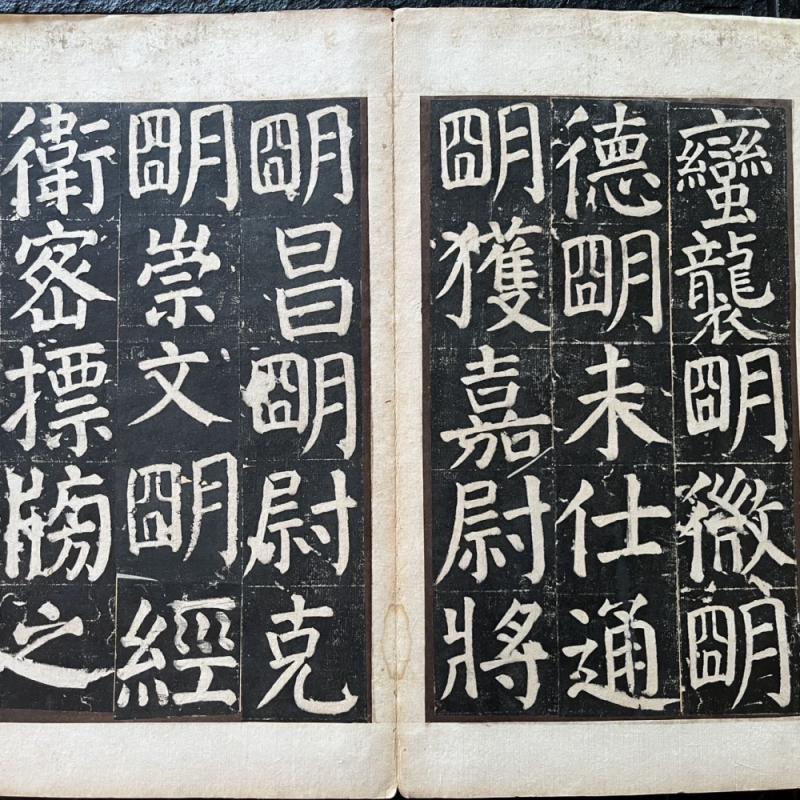 蠻襲朙微朙
德朙未仕通
朙獲嘉尉將
朙昌朙尉克
朙崇文朙經
衛密摽牓之